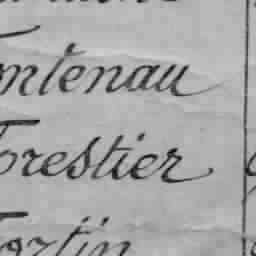 Fontenau
Forestier
Fortin